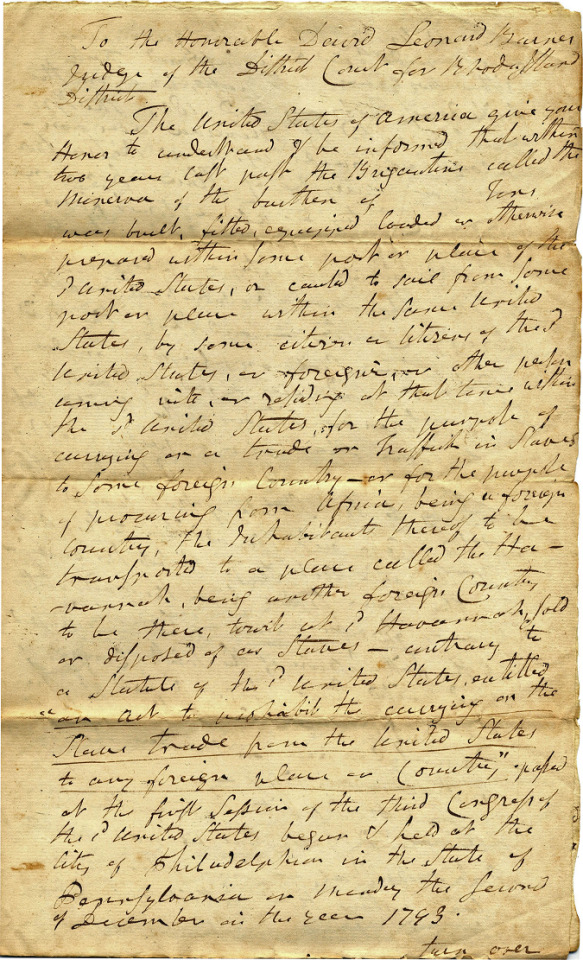 To the Honorable David Leonard Barnes
Judge of the District Court for Rhode Island
District.
The United States of America give your
Honor to understand & be informed that within
two years last past the Brigantine called the
Minerva of the burthen of Tons
was built, fitted, equipped loaded or otherwise
prepared within some port or place of the
sd United States, or caused to sail from some
port or place within the same United
States, by some citizen or Citizens of the sd
United States, or foreigner, or other person
coming into, or residing at that time within
the sd United States, for the purpose of
carrying on a trade or traffick in Slaves
to some foreign Country – or for the purpose
of procuring from Africa, being a foreign
Country, the Inhabitants thereof to be
transported to a place called the Ha–
–vannah, being another foreign Country
to be there, towit at sd Havannah, sold
or disposed of as Slaves – contrary to
a Statute of the sd United States, entitled
"an Act to prohibit the carrying on the
Slave trade from the United States
to any foreign place or Country", passed
at the first Session of the third Congress of
the sd United States begun & held at the
City of Philadelphia in the State of
Pennsylvania on Monday the Second
of December in the year 1793.
turn over